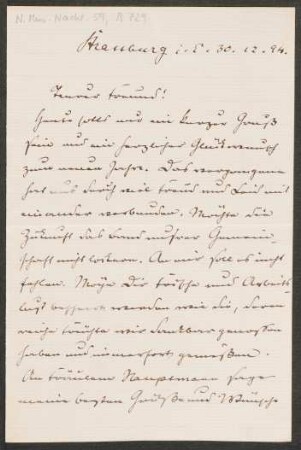 N. Mus. Nachl. 59, B 729
Strassburg i. E. 30.12.94.
Teurer Freund!
Heute solls nur ein kurzer Gruß
sein und ein herzlicher Glückwunsch
zum neuen Jahre. Das vergangene
hat uns durch wie Freud und Leid mit
einander verbunden. Möchte die
Zukunft das Band unsrer Gemein-
schaft nicht lockern. An mir soll es nicht
fehlen. Möge Dir Frische und Arbeits-
lust beschert werden wie die, deren
reiche Früchte wir dankbar genossen
haben und immerfort genießen.
An Fräulein Hauptmann sage
meine besten Grüße und Wünsche